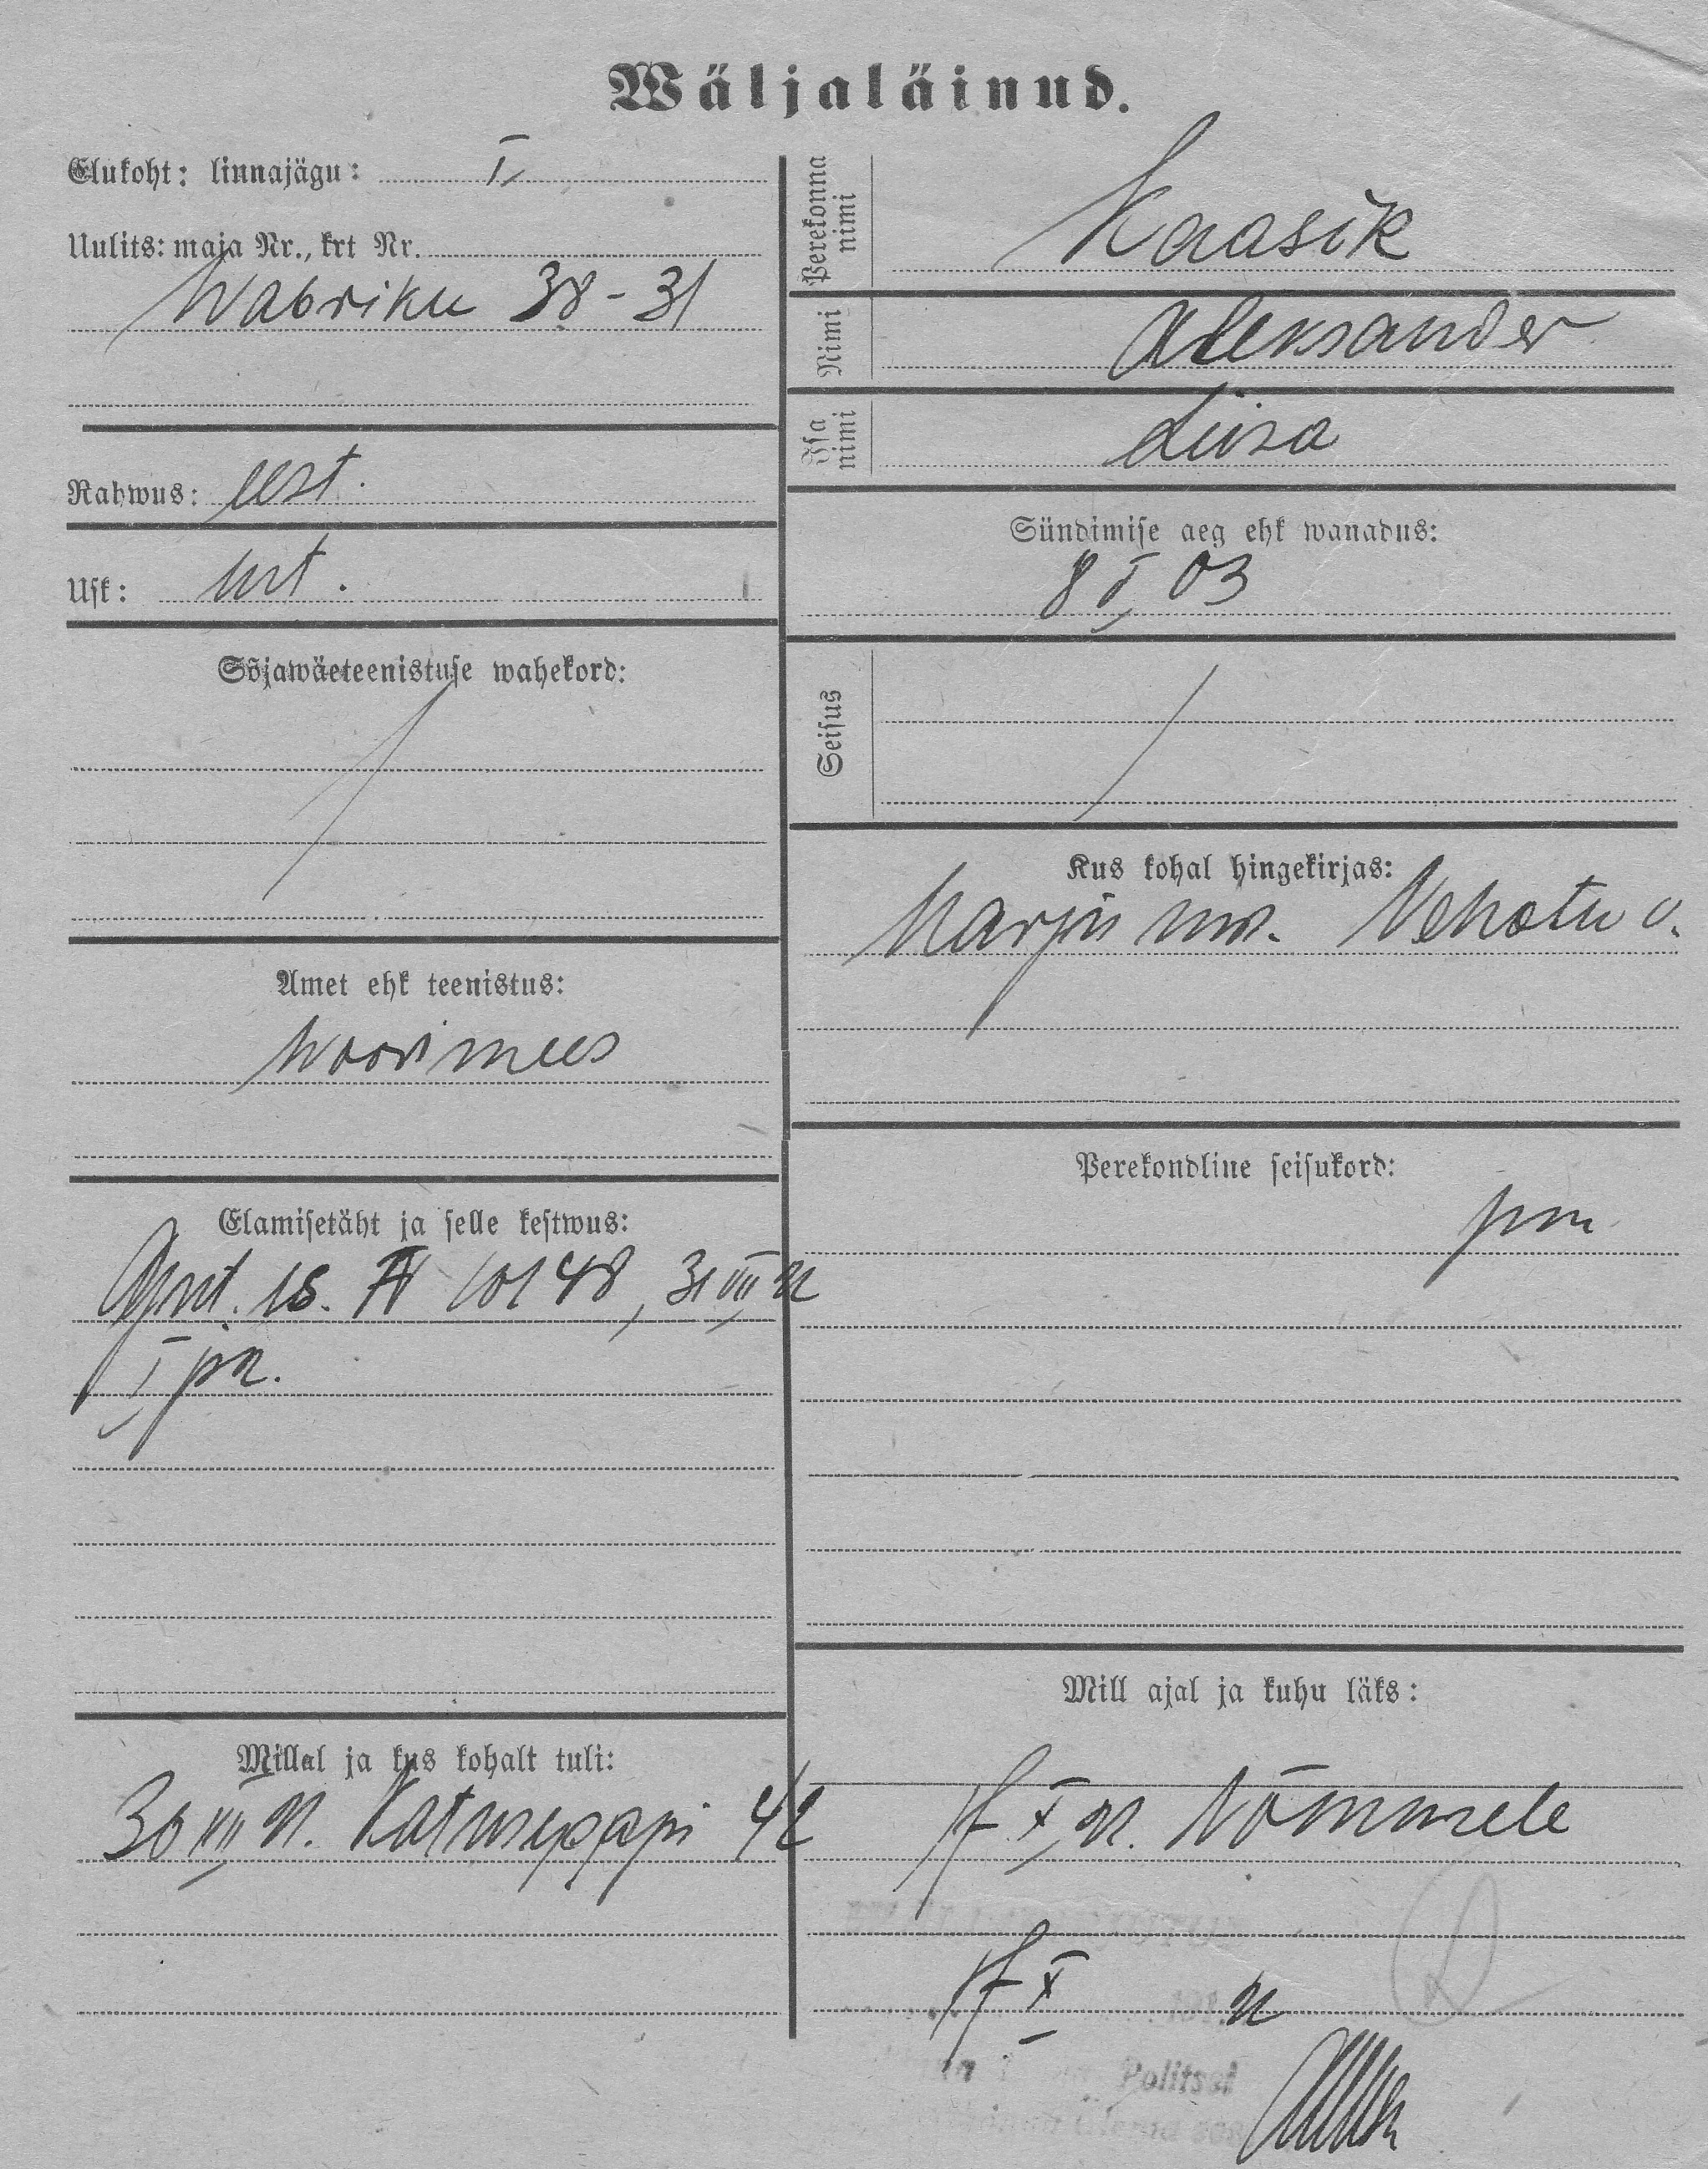 Wäljaläinud.
Elukoht: linnajägu: I
Uulits: maja Nr., krt Nr.
Wabriku 38-31
Rahwus: eest.
Usk: lut.
Sõjawäeteenistuse wahekord:
Amet ehk teenistus:
Woorimees
Elamisetäht ja selle kestwus:
10148, 31 VIII 21
I
Millal ja kus kohalt tuli:
30 VIII 21. Katusepappi 42
Perekonna nimi
Kaasik
Nimi
Aleksander
Isa nimi
Liisa
Sündimise aeg ehk wanadus:
8 I, 03
Seisus
Kus kohal hingekirjas:
Harju mk. Nehatu v.
Perekondline seisukord:
Mill ajal ja kuhu läks:
X 21. Nõmmele
X 21
Politsei